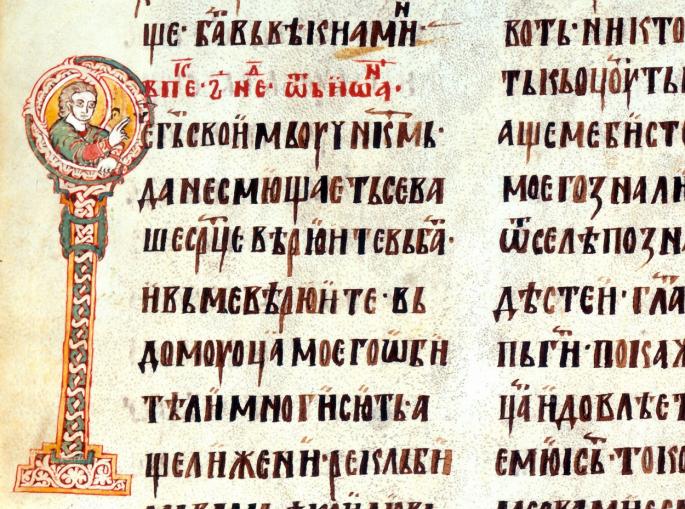 ше· б҃а вь вѣкꙇ намн
вь пе· г҃ не· ѿ ьн ѿа·
е г҃ь свонмь оучнкмь·
да не смющаеть се ва
ше ср҃це вѣрюнте вь б҃а·
н вь ме вѣрюнте· вь
домоу оц҃а моего ѡбн
тѣлн многн сють· а
ще лн же нн· рекль бн
воть· ннкто
ть кь оцоу ть
аще ме бнсте
моего зналн
ѿселѣ позна
дѣсте н· гла
пь г҃н· покаж
ца н довлѣет
емю нс҃ь· токо